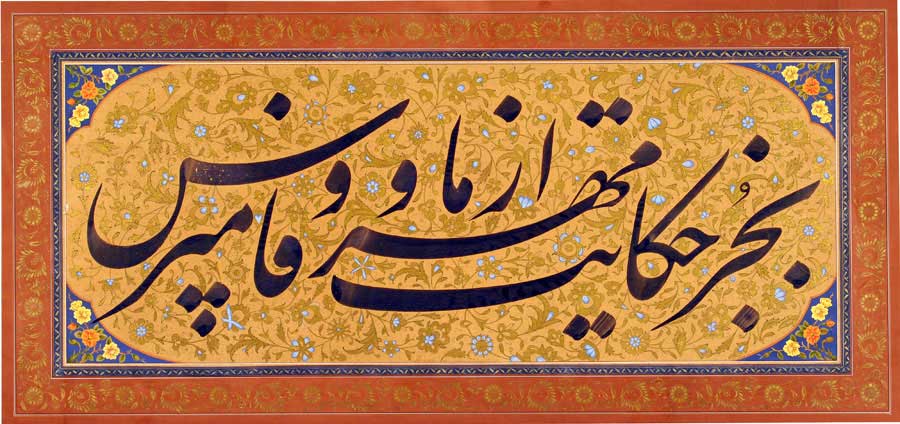 از ما بجز حکایت مهر و وفا مپرس